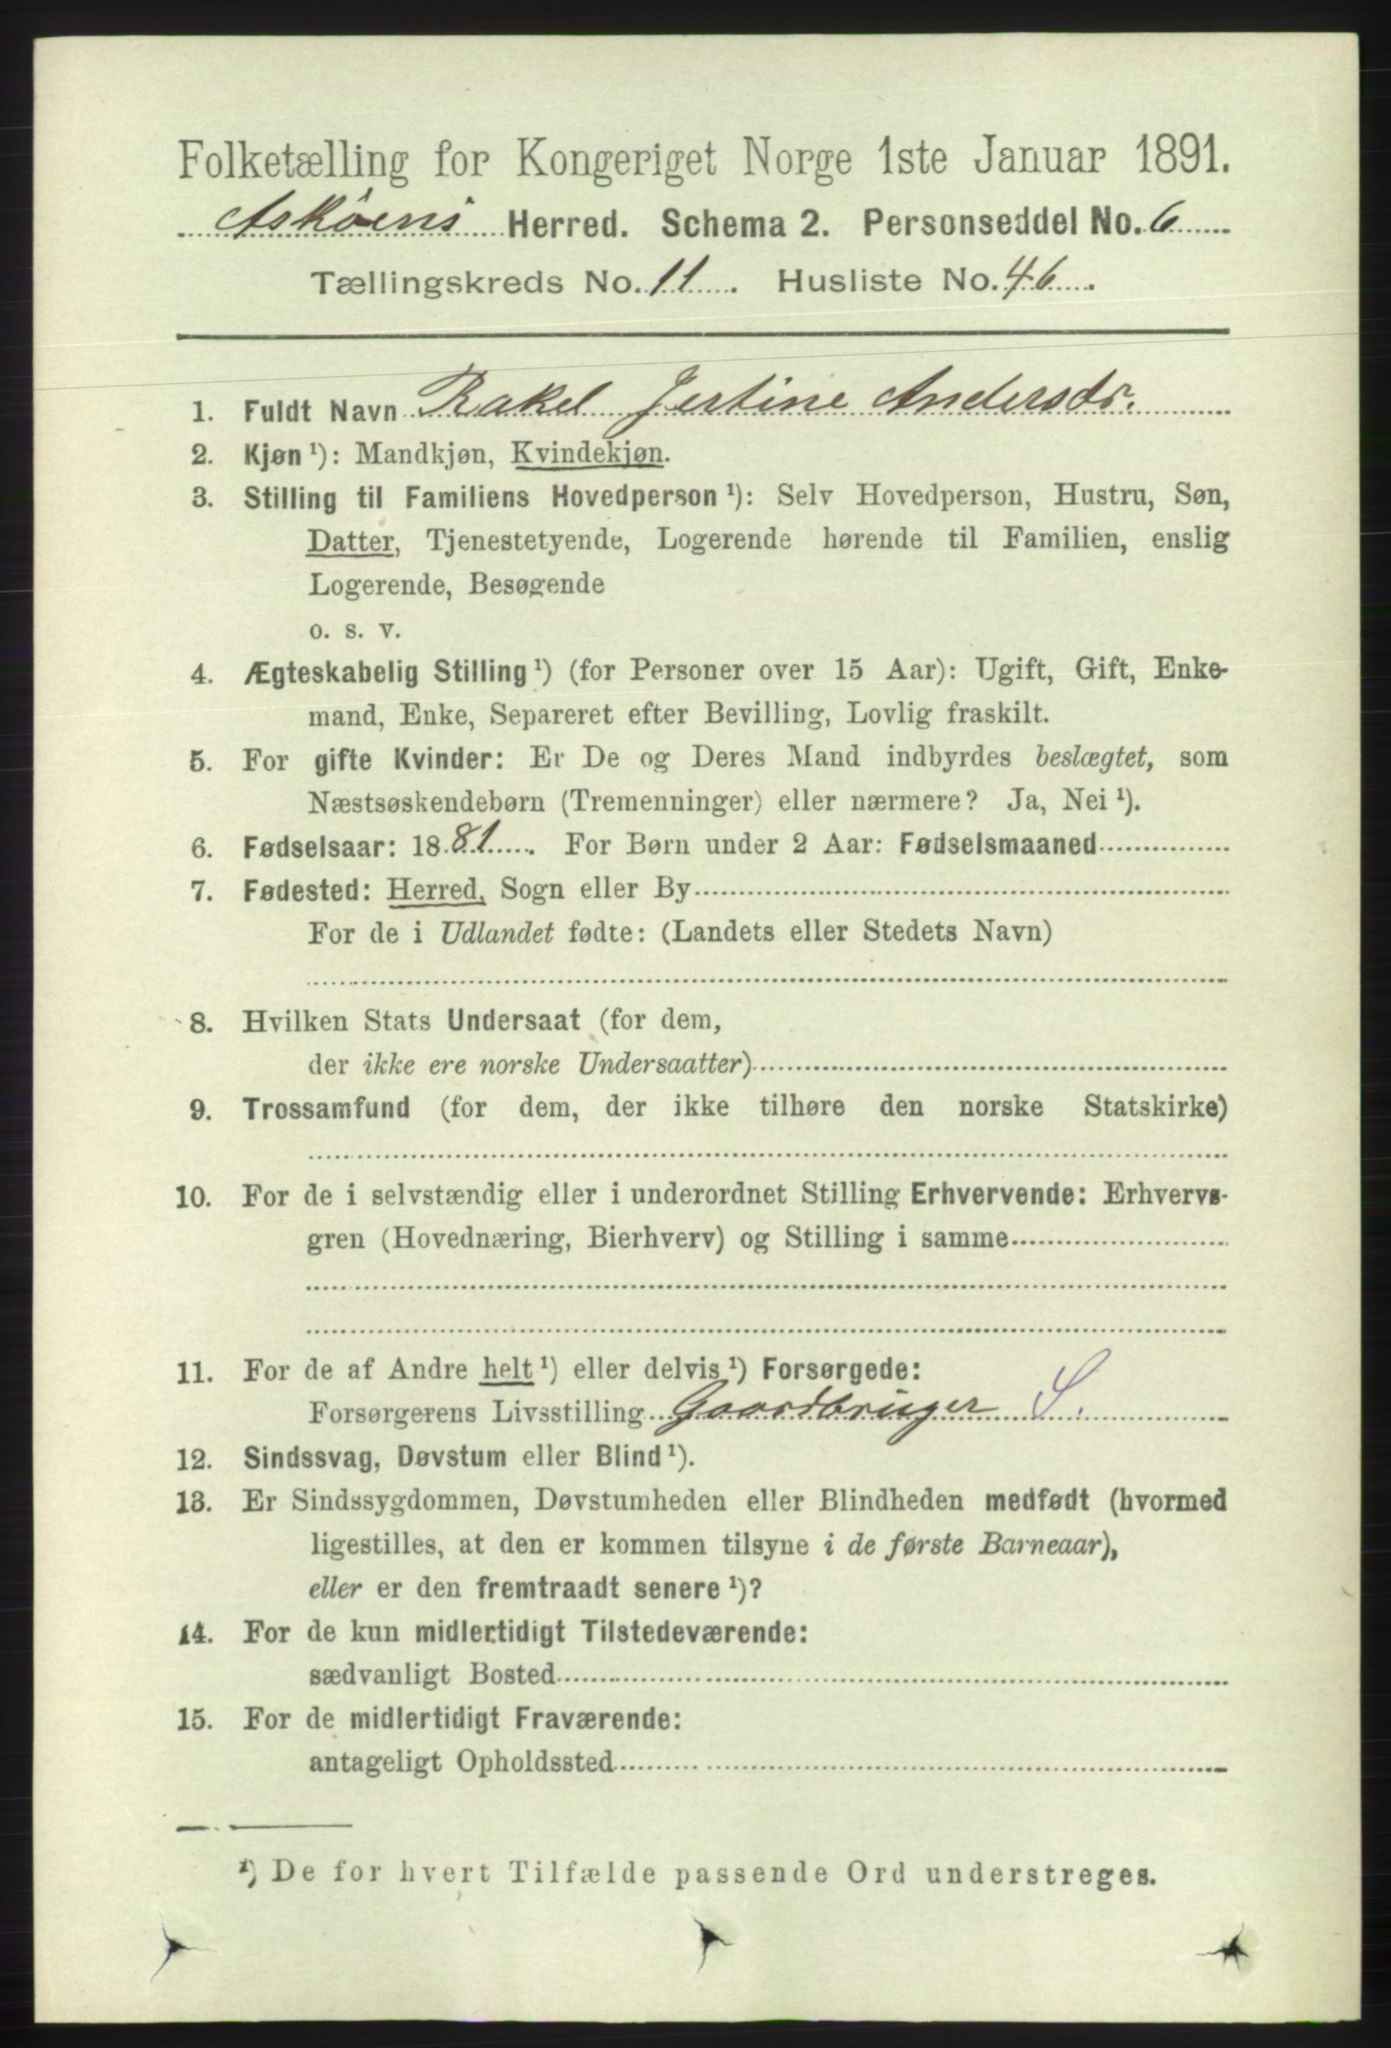 Folketælling for Kongeriget Norge 1ste Januar 1891.
Askøens Herred. Schema 2. Personseddel No. 6
Tællingskreds No. 11. Husliste No. 46.
1. Fuldt Navn Rakel Jertine Andersdr.
2. Kjøn ¹): Mandkjøn, Kvindekjøn.
3. Stilling til Familiens Hovedperson ¹): Selv Hovedperson, Hustru, Søn,
Datter, Tjenestetyende, Logerende hørende til Familien, enslig
Logerende, Besøgende
o. s. v.
4. Ægteskabelig Stilling ¹) (for Personer over 15 Aar): Ugift, Gift, Enke-
mand, Enke, Separeret efter Bevilling, Lovlig fraskilt.
5. For gifte Kvinder: Er De og Deres Mand indbyrdes beslægtet, som
Næstsøskendebørn (Tremenninger) eller nærmere? Ja, Nei ¹).
6. Fødselsaar: 1881. For Børn under 2 Aar: Fødselsmaaned
7. Fødested: Herred, Sogn eller By
For de i Udlandet fødte: (Landets eller Stedets Navn)
8. Hvilken Stats Undersaat (for dem,
der ikke ere norske Undersaatter)
9. Trossamfund (for dem, der ikke tilhøre den norske Statskirke)
10. For de i selvstændig eller i underordnet Stilling Erhvervende: Erhvervs-
gren (Hovednæring, Bierhverv) og Stilling i samme
11. For de af Andre helt ¹) eller delvis ¹) Forsørgede:
Forsørgerens Livsstilling Gaardbruger S.
12. Sindssvag, Døvstum eller Blind ¹).
13. Er Sindssygdommen, Døvstumheden eller Blindheden medfødt (hvormed
ligestilles, at den er kommen tilsyne i de første Barneaar),
eller er den fremtraadt senere ¹)?
14. For de kun midlertidigt Tilstedeværende:
sædvanligt Bosted
15. For de midlertidigt Fraværende:
antageligt Opholdssted
¹) De for hvert Tilfælde passende Ord understreges.